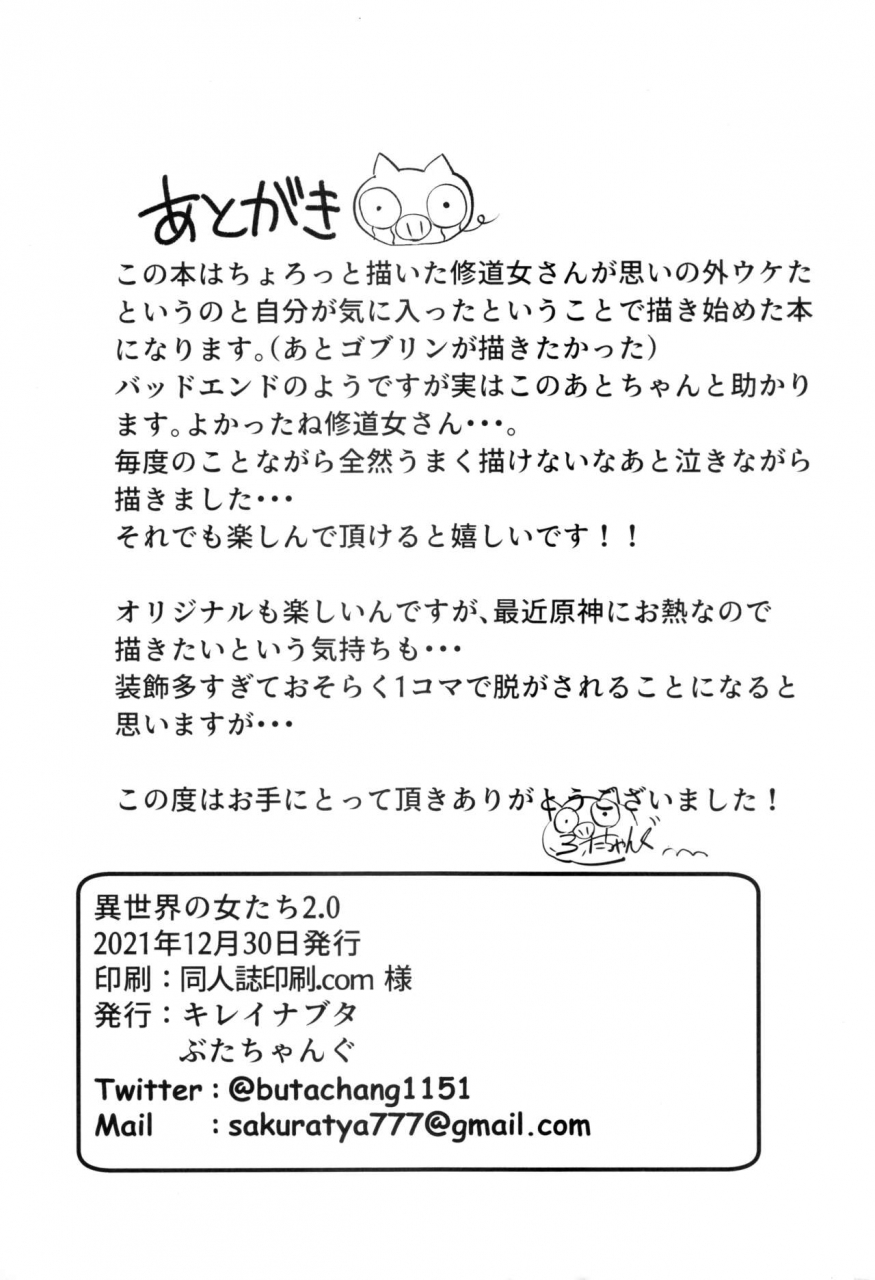 あとがき
この本はちょろっと描いた修道女さんが思いの外ウケた
というのと自分が気に入ったということで描き始めた本
になります。(あとゴブリンが描きたかった)
バッドエンドのようですが実はこのあとちゃんと助かり
ます。よかったね修道女さん･･･。
毎度のことながら全然うまく描けないなあと泣きながら
描きました･･･
それでも楽しんで頂けると嬉しいです！！
オリジナルも楽しいんですが、最近原神にお熱なので
描きたいという気持ちも･･･
装飾多すぎておそらく1コマで脱がされることになると
思いますが･･･
この度はお手にとって頂きありがとうございました！
ぶたちゃんぐ
異世界の女たち2.0
2021年12月30日発行
印刷：同人誌印刷.com 様
発行：キレイナブタ
ぶたちゃんぐ
Twitter : @butachang1151
Mail : sakuratya777@gmail.com